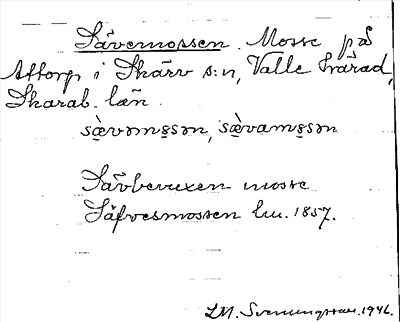 Sävemossen. Mosse på
Attorp i Skärv s:n, Valle härad,
Skarab. län.
sæ̀vəmɷsən, sæ̀vamɷsən
Sävbevuxen mosse.
Säfvesmossen lm. 1857.
LM. Svenungsson. 1946.